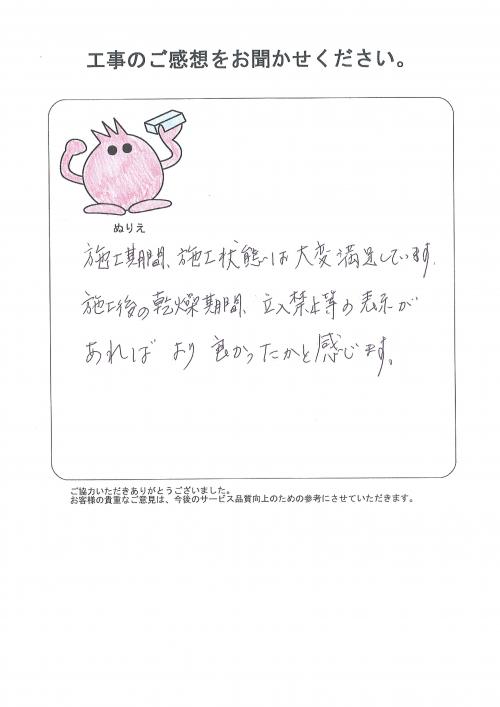 工事のご感想をお聞かせください。
ぬりえ
施工期間、施工状態は大変満足しています。
施工後の乾燥期間、立入禁止等の表示が
あれば より 良かったかと感じます。
ご協力いただきありがとうございました。
お客様の貴重なご意見は、今後のサービス品質向上のための参考にさせていただきます。